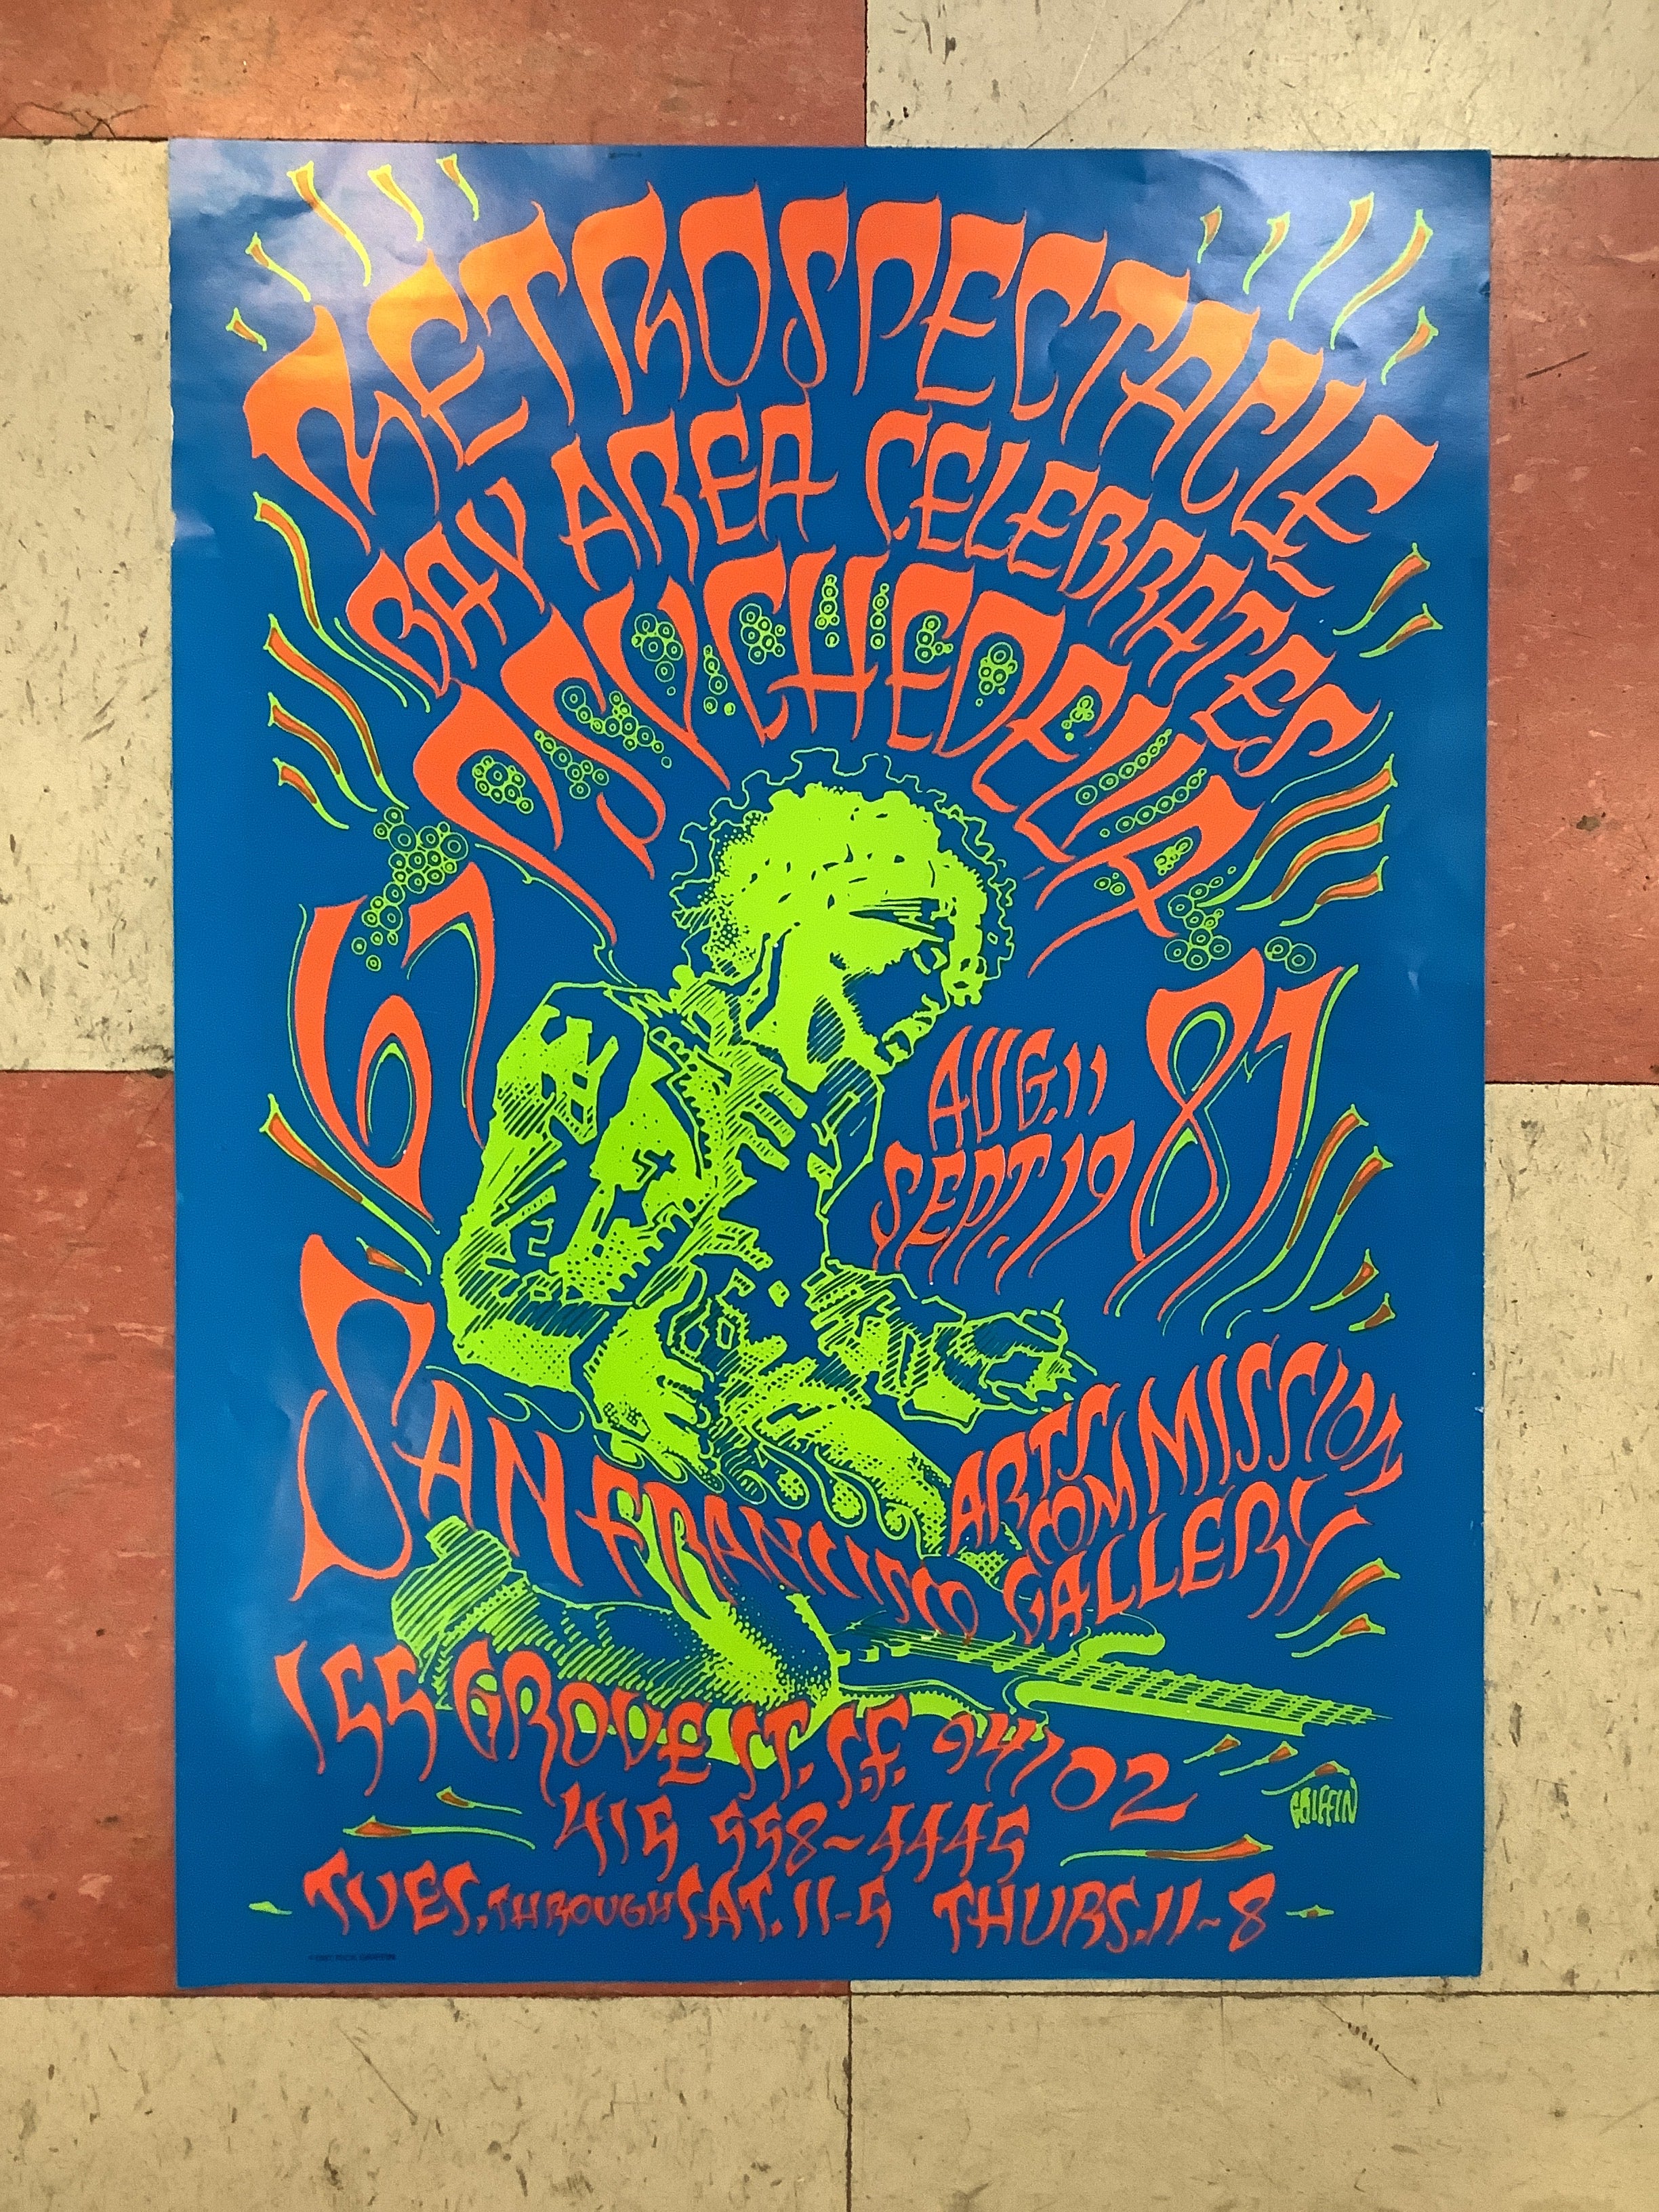 RETROSPECTACLE
BAY AREA CELEBRATES
PSYCHEDELIA
67
87
AUG. 11
SEPT. 19
SAN FRANCISCO
ARTS
COMMISSION
GALLERY
155 GROVE ST. S.F. 94102
415 558~4445
GRIFFIN
TUES. THROUGH SAT. 11-5 THURS. 11~8